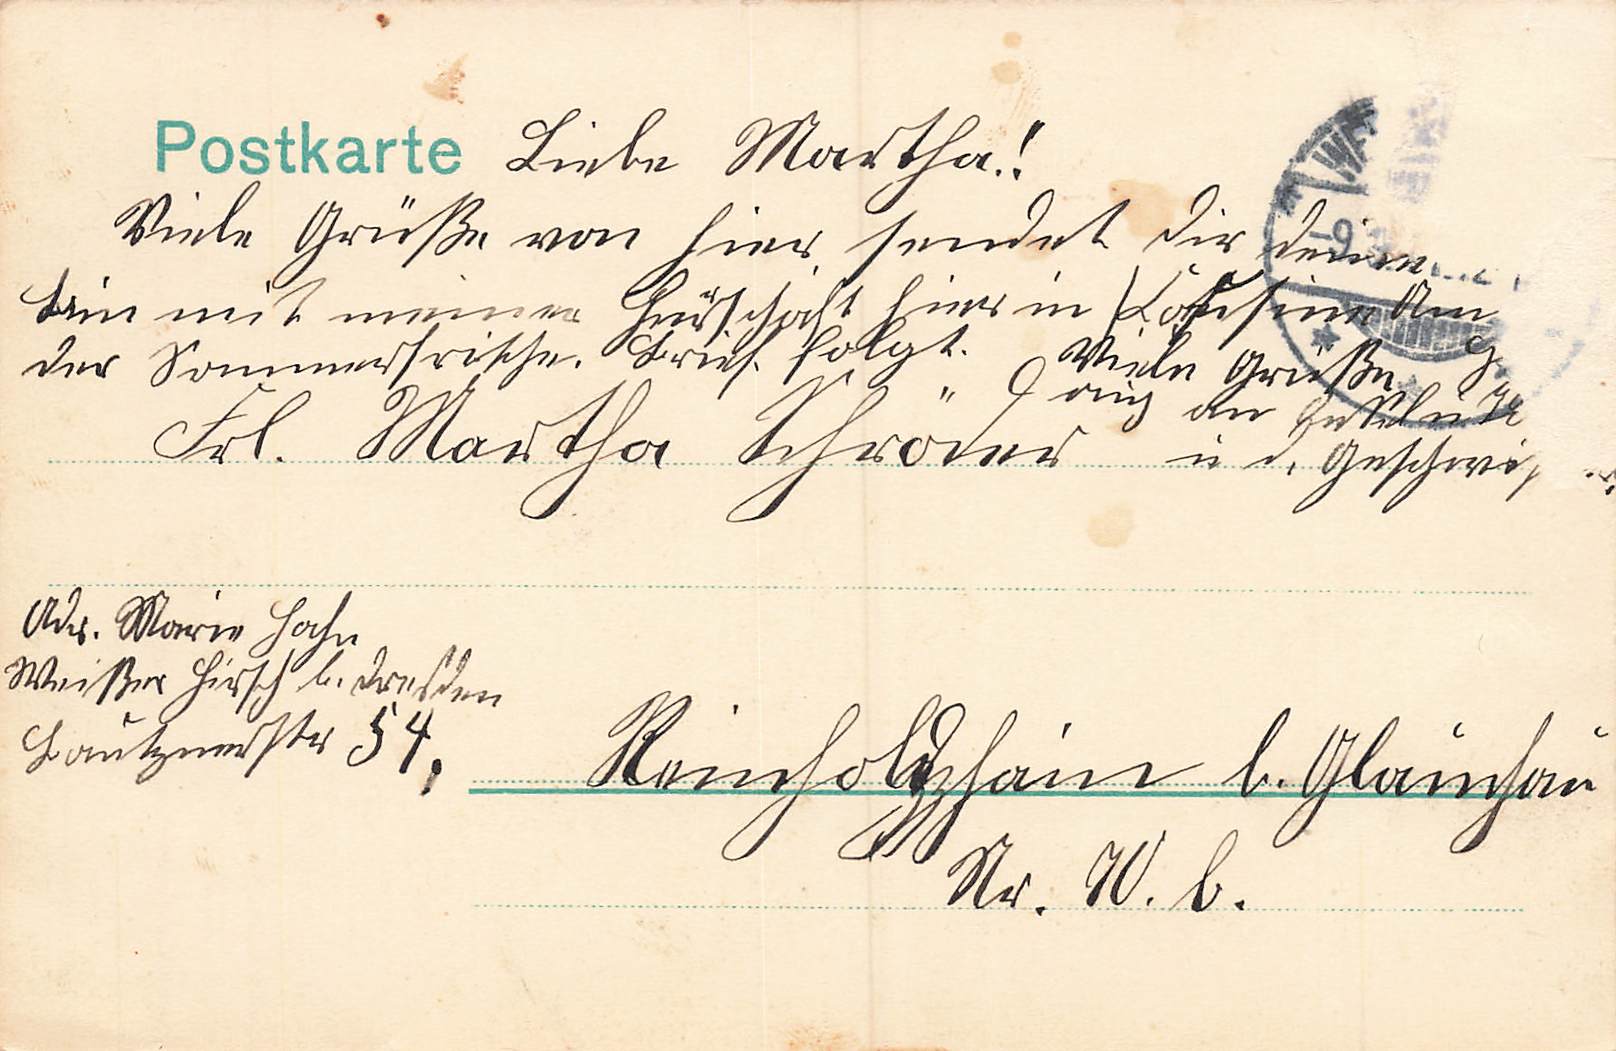 Postkarte
Liebe Martha!
Viele Grüße von hier sendet Dir deine
bin mit meiner Herschaft hier in
der Sommerfrische. Brief folgt. Viele Grüße
auch an
u d. Geschwister
Frl. Martha Schröder
Adr. Marie Hahn
Weißer Hirsch b. Dresden
Bautznerstr 54,
Reinholdshain b. Glauchau
Nr. W. b.